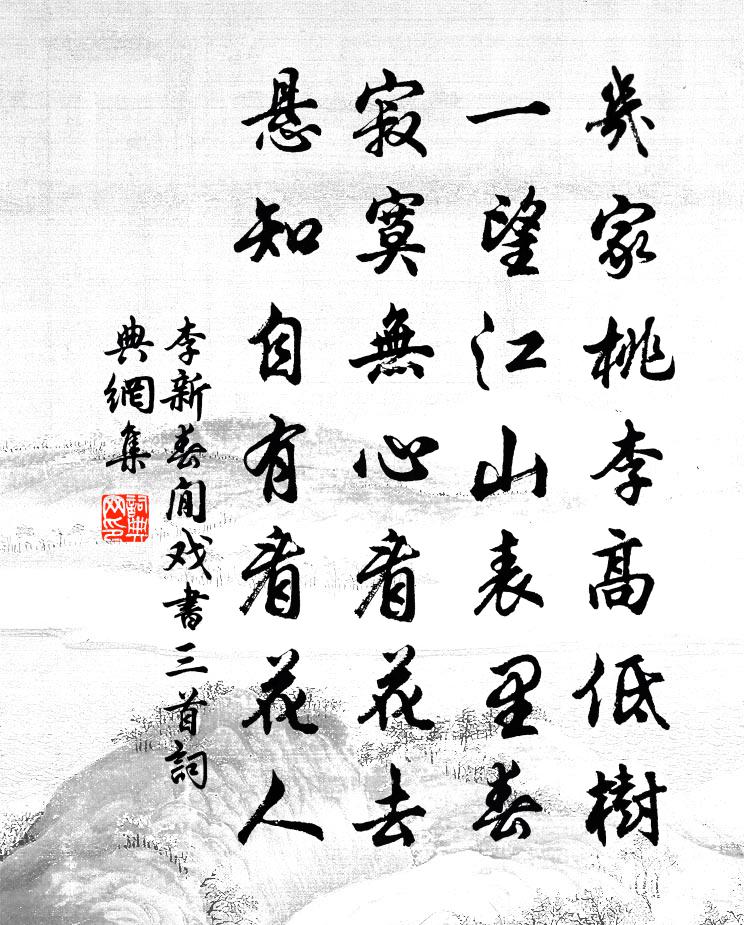 幾家桃李高低樹
一望江山表里春
寂寞無心看花去
悬知自有看花人
李新春闲戏書三首詞
典網集
詞典
网印